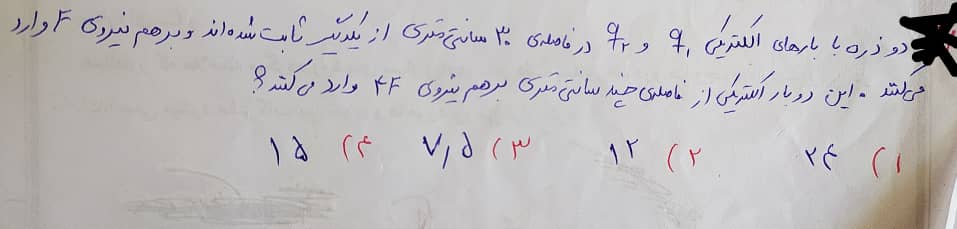 دو ذره با بارهای الکتریکی q₁ و q₂ در فاصله‌ی ۳۰ سانتی‌متری از یکدیگر ثابت شده‌اند و بر هم نیروی F وارد
می‌کنند. این دو بار الکتریکی از فاصله‌ی چند سانتی‌متری بر هم نیروی ۴F وارد می‌کنند؟
۱) ۲۴ ۲) ۱۲ ۳) ۷٫۵ ۴) ۱۵